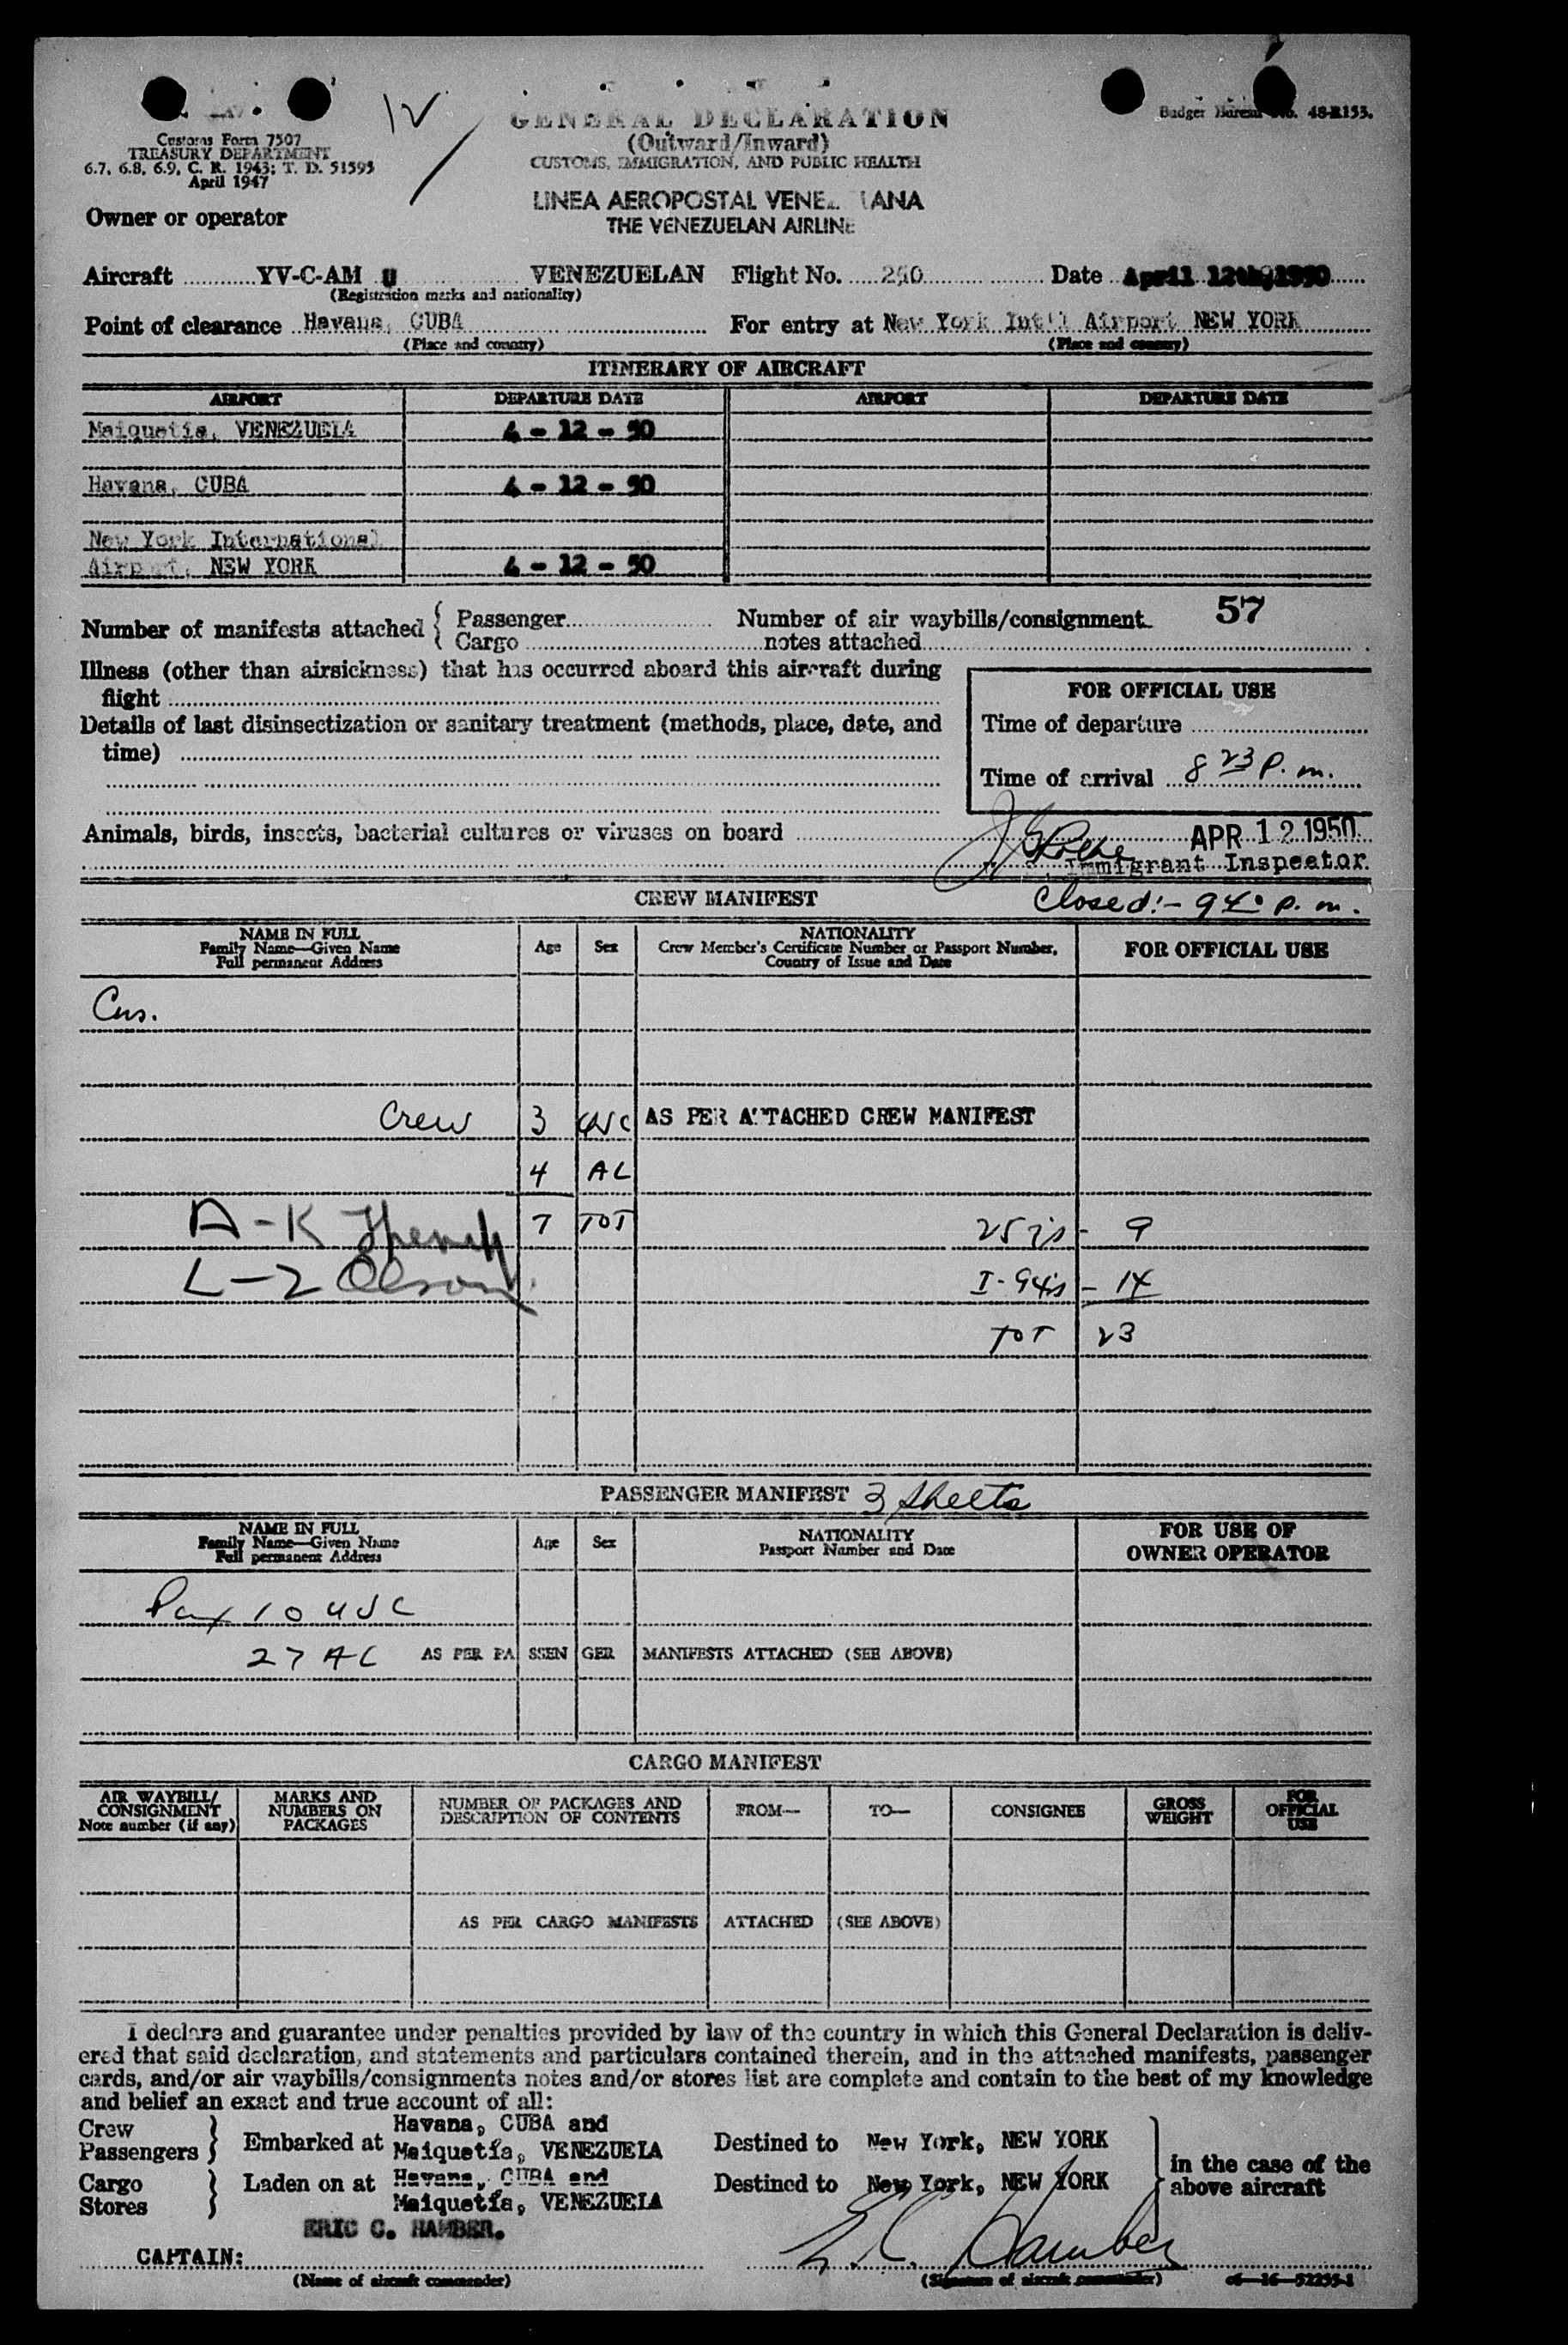 12
GENERAL DECLARATION
(Outward/Inward)
CUSTOMS, IMMIGRATION, AND PUBLIC HEALTH
Budget Bureau No. 48-R153.
Customs Form 7507
TREASURY DEPARTMENT
6.7, 6.8, 6.9, C. R. 1943; T. D. 51595
April 1947
LINEA AEROPOSTAL VENE IANA
THE VENEZUELAN AIRLINE
Owner or operator
Aircraft YV-C-AM U VENEZUELAN Flight No. 250 Date April 12th, 1950
(Registration marks and nationality)
Point of clearance Havana, CUBA For entry at New York Int'l Airport NEW YORK
(Place and country) (Place and country)
ITINERARY OF AIRCRAFT
AIRPORT DEPARTURE DATE AIRPORT DEPARTURE DATE
Maiquetia, VENEZUELA 4 - 12 - 50
Havana, CUBA 4 - 12 - 50
New York International
Airport, NEW YORK 4 - 12 - 50
Number of manifests attached { Passenger Number of air waybills/consignment 57
Cargo notes attached
Illness (other than airsickness) that has occurred aboard this aircraft during
flight
Details of last disinsectization or sanitary treatment (methods, place, date, and
time)
FOR OFFICIAL USE
Time of departure
Time of arrival 8 23 P. m.
Animals, birds, insects, bacterial cultures or viruses on board
APR 12 1950
Immigrant Inspector
CREW MANIFEST Closed:- 9 40 p. m.
NAME IN FULL
Family Name—Given Name
Full permanent Address
Age Sex
NATIONALITY
Crew Member's Certificate Number or Passport Number,
Country of Issue and Date
FOR OFFICIAL USE
Cus.
Crew 3 USC AS PER ATTACHED CREW MANIFEST
4 AL
A-K 7 TOT 257's - 9
L-Z Olson I-94's - 14
TOT 23
PASSENGER MANIFEST 3 sheets
NAME IN FULL
Family Name—Given Name
Full permanent Address
Age Sex
NATIONALITY
Passport Number and Date
FOR USE OF
OWNER OPERATOR
Pax 10 USC
27 AL AS PER PASSENGER MANIFESTS ATTACHED (SEE ABOVE)
CARGO MANIFEST
AIR WAYBILL/
CONSIGNMENT
Note number (if any)
MARKS AND
NUMBERS ON
PACKAGES
NUMBER OF PACKAGES AND
DESCRIPTION OF CONTENTS
FROM— TO— CONSIGNEE
GROSS
WEIGHT
FOR
OFFICIAL
USE
AS PER CARGO MANIFESTS ATTACHED (SEE ABOVE)
I declare and guarantee under penalties provided by law of the country in which this General Declaration is deliv-
ered that said declaration, and statements and particulars contained therein, and in the attached manifests, passenger
cards, and/or air waybills/consignments notes and/or stores list are complete and contain to the best of my knowledge
and belief an exact and true account of all:
Crew
Passengers } Embarked at Havana, CUBA and
Maiquetía, VENEZUELA
Destined to New York, NEW YORK
Cargo
Stores } Laden on at Havana, CUBA and
Maiquetía, VENEZUELA
Destined to New York, NEW YORK
} in the case of the
above aircraft
ERIC C. HAMBER.
CAPTAIN: E. C. Hamber
(Name of aircraft commander) (Signature of aircraft commander) c6—16—52255-1